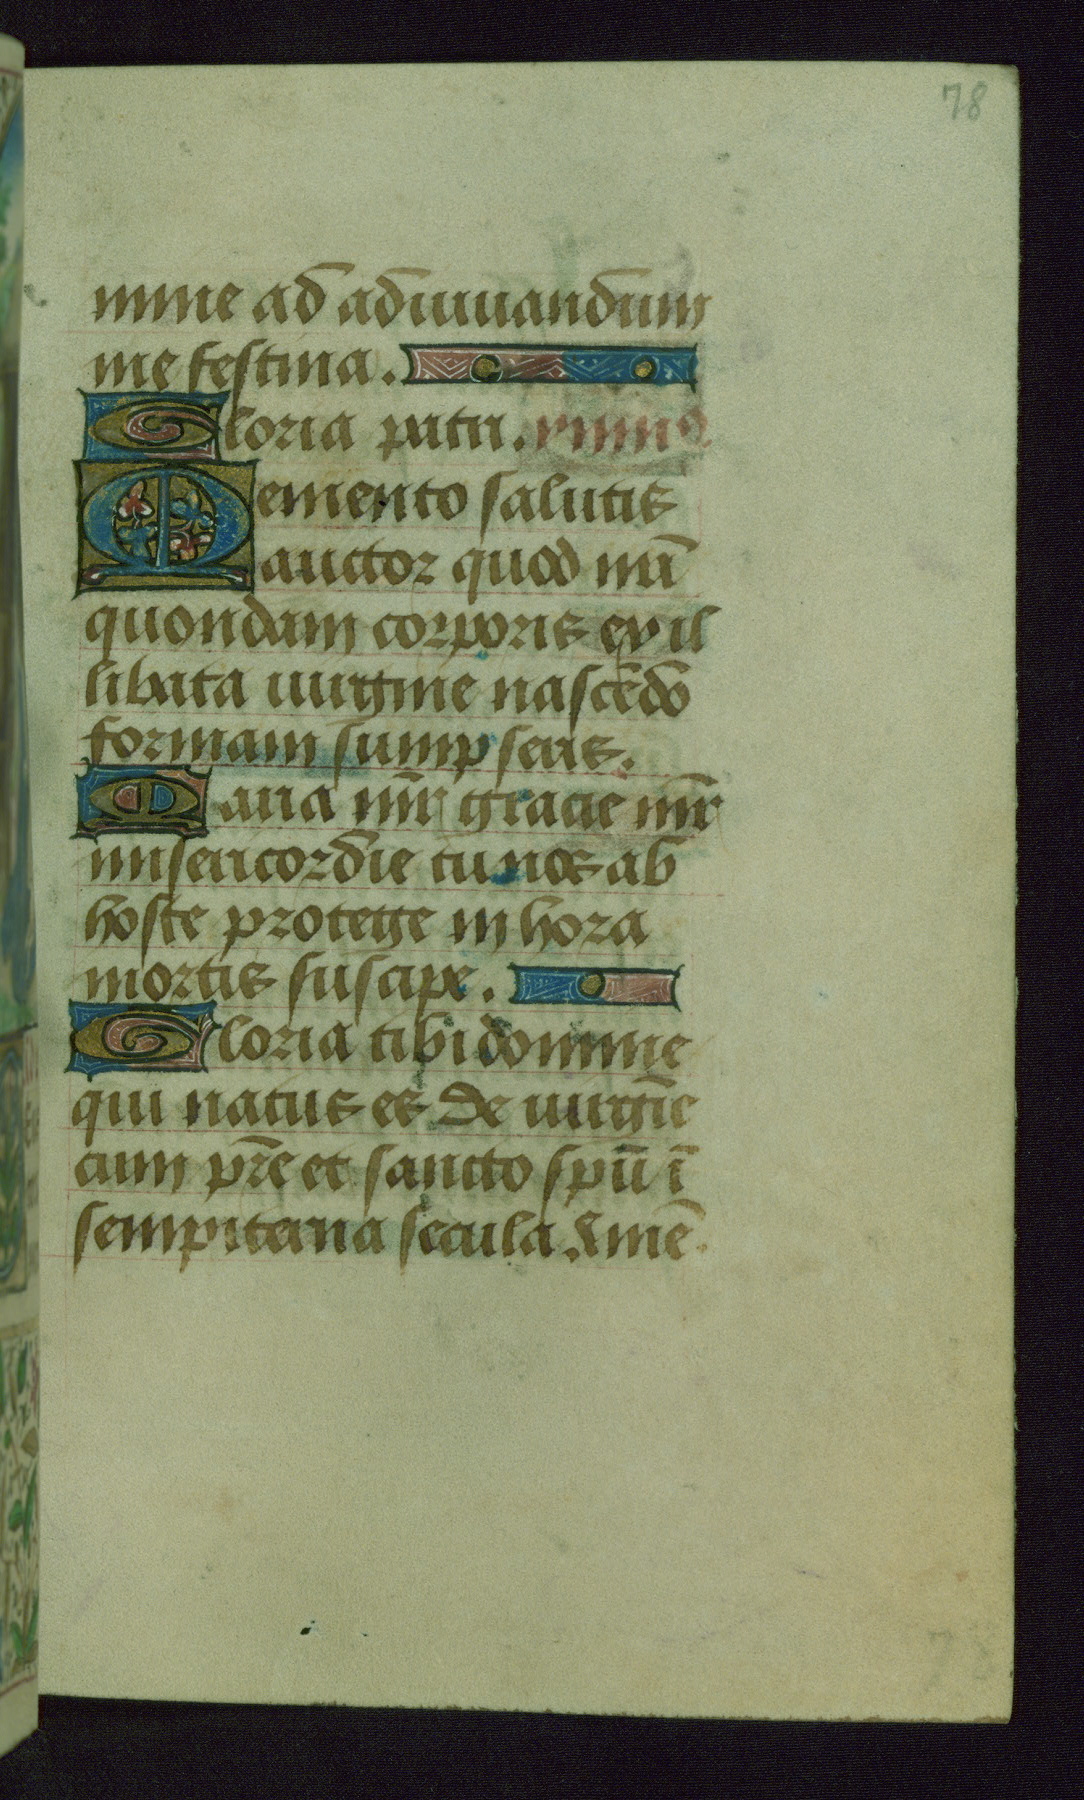 78
mine ad adiuuandum
me festina.
Gloria patri. ymnus
Memento salutis
auctor quod nrī
quondam corporis ex il
libata uirgine nascēdo
formam sumpseris.
Maria mr̄ gracie mr̄
misericordie tu nos ab
hoste protege in hora
mortis suscipe.
Gloria tibi domine
qui natus es de uirgīe
cum pr̄e et sancto spū ī
sempiterna secula. Amē.
78